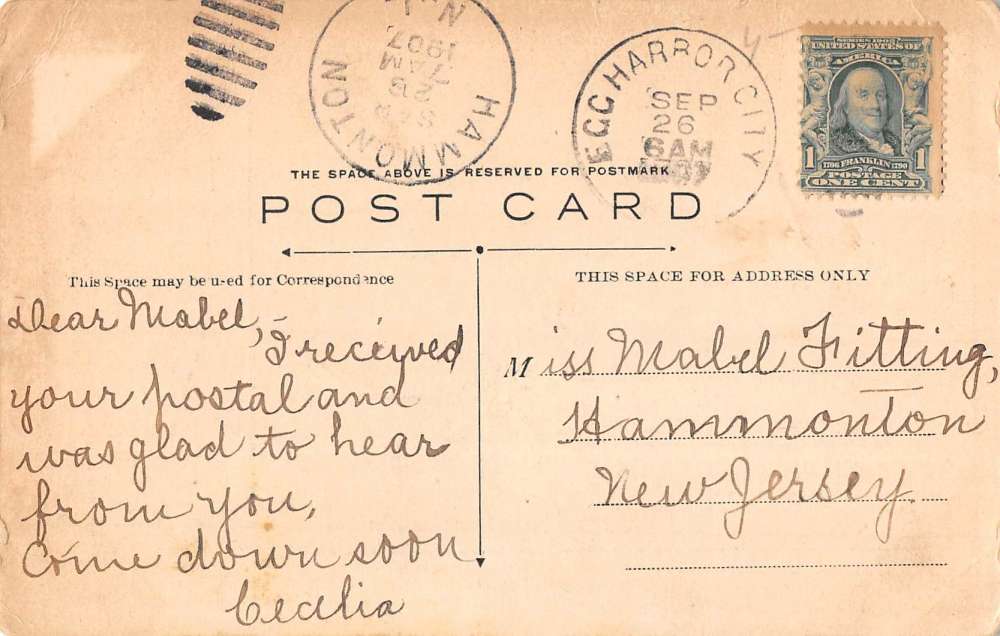 HAMMONTON
SEP
26
7 AM
1907
N.J.
EGG HARBOR CITY
SEP
26
6 AM
1907
SERIES 1902
UNITED STATES OF
AMERICA
1
1
1706 FRANKLIN 1790
POSTAGE
ONE CENT
THE SPACE ABOVE IS RESERVED FOR POSTMARK.
POST CARD
This Space may be used for Correspondence
THIS SPACE FOR ADDRESS ONLY
Dear Mabel,
I received
your postal and
was glad to hear
from you,
Come down soon
Cecelia
Miss Mabel Fitting,
Hammonton
New Jersey